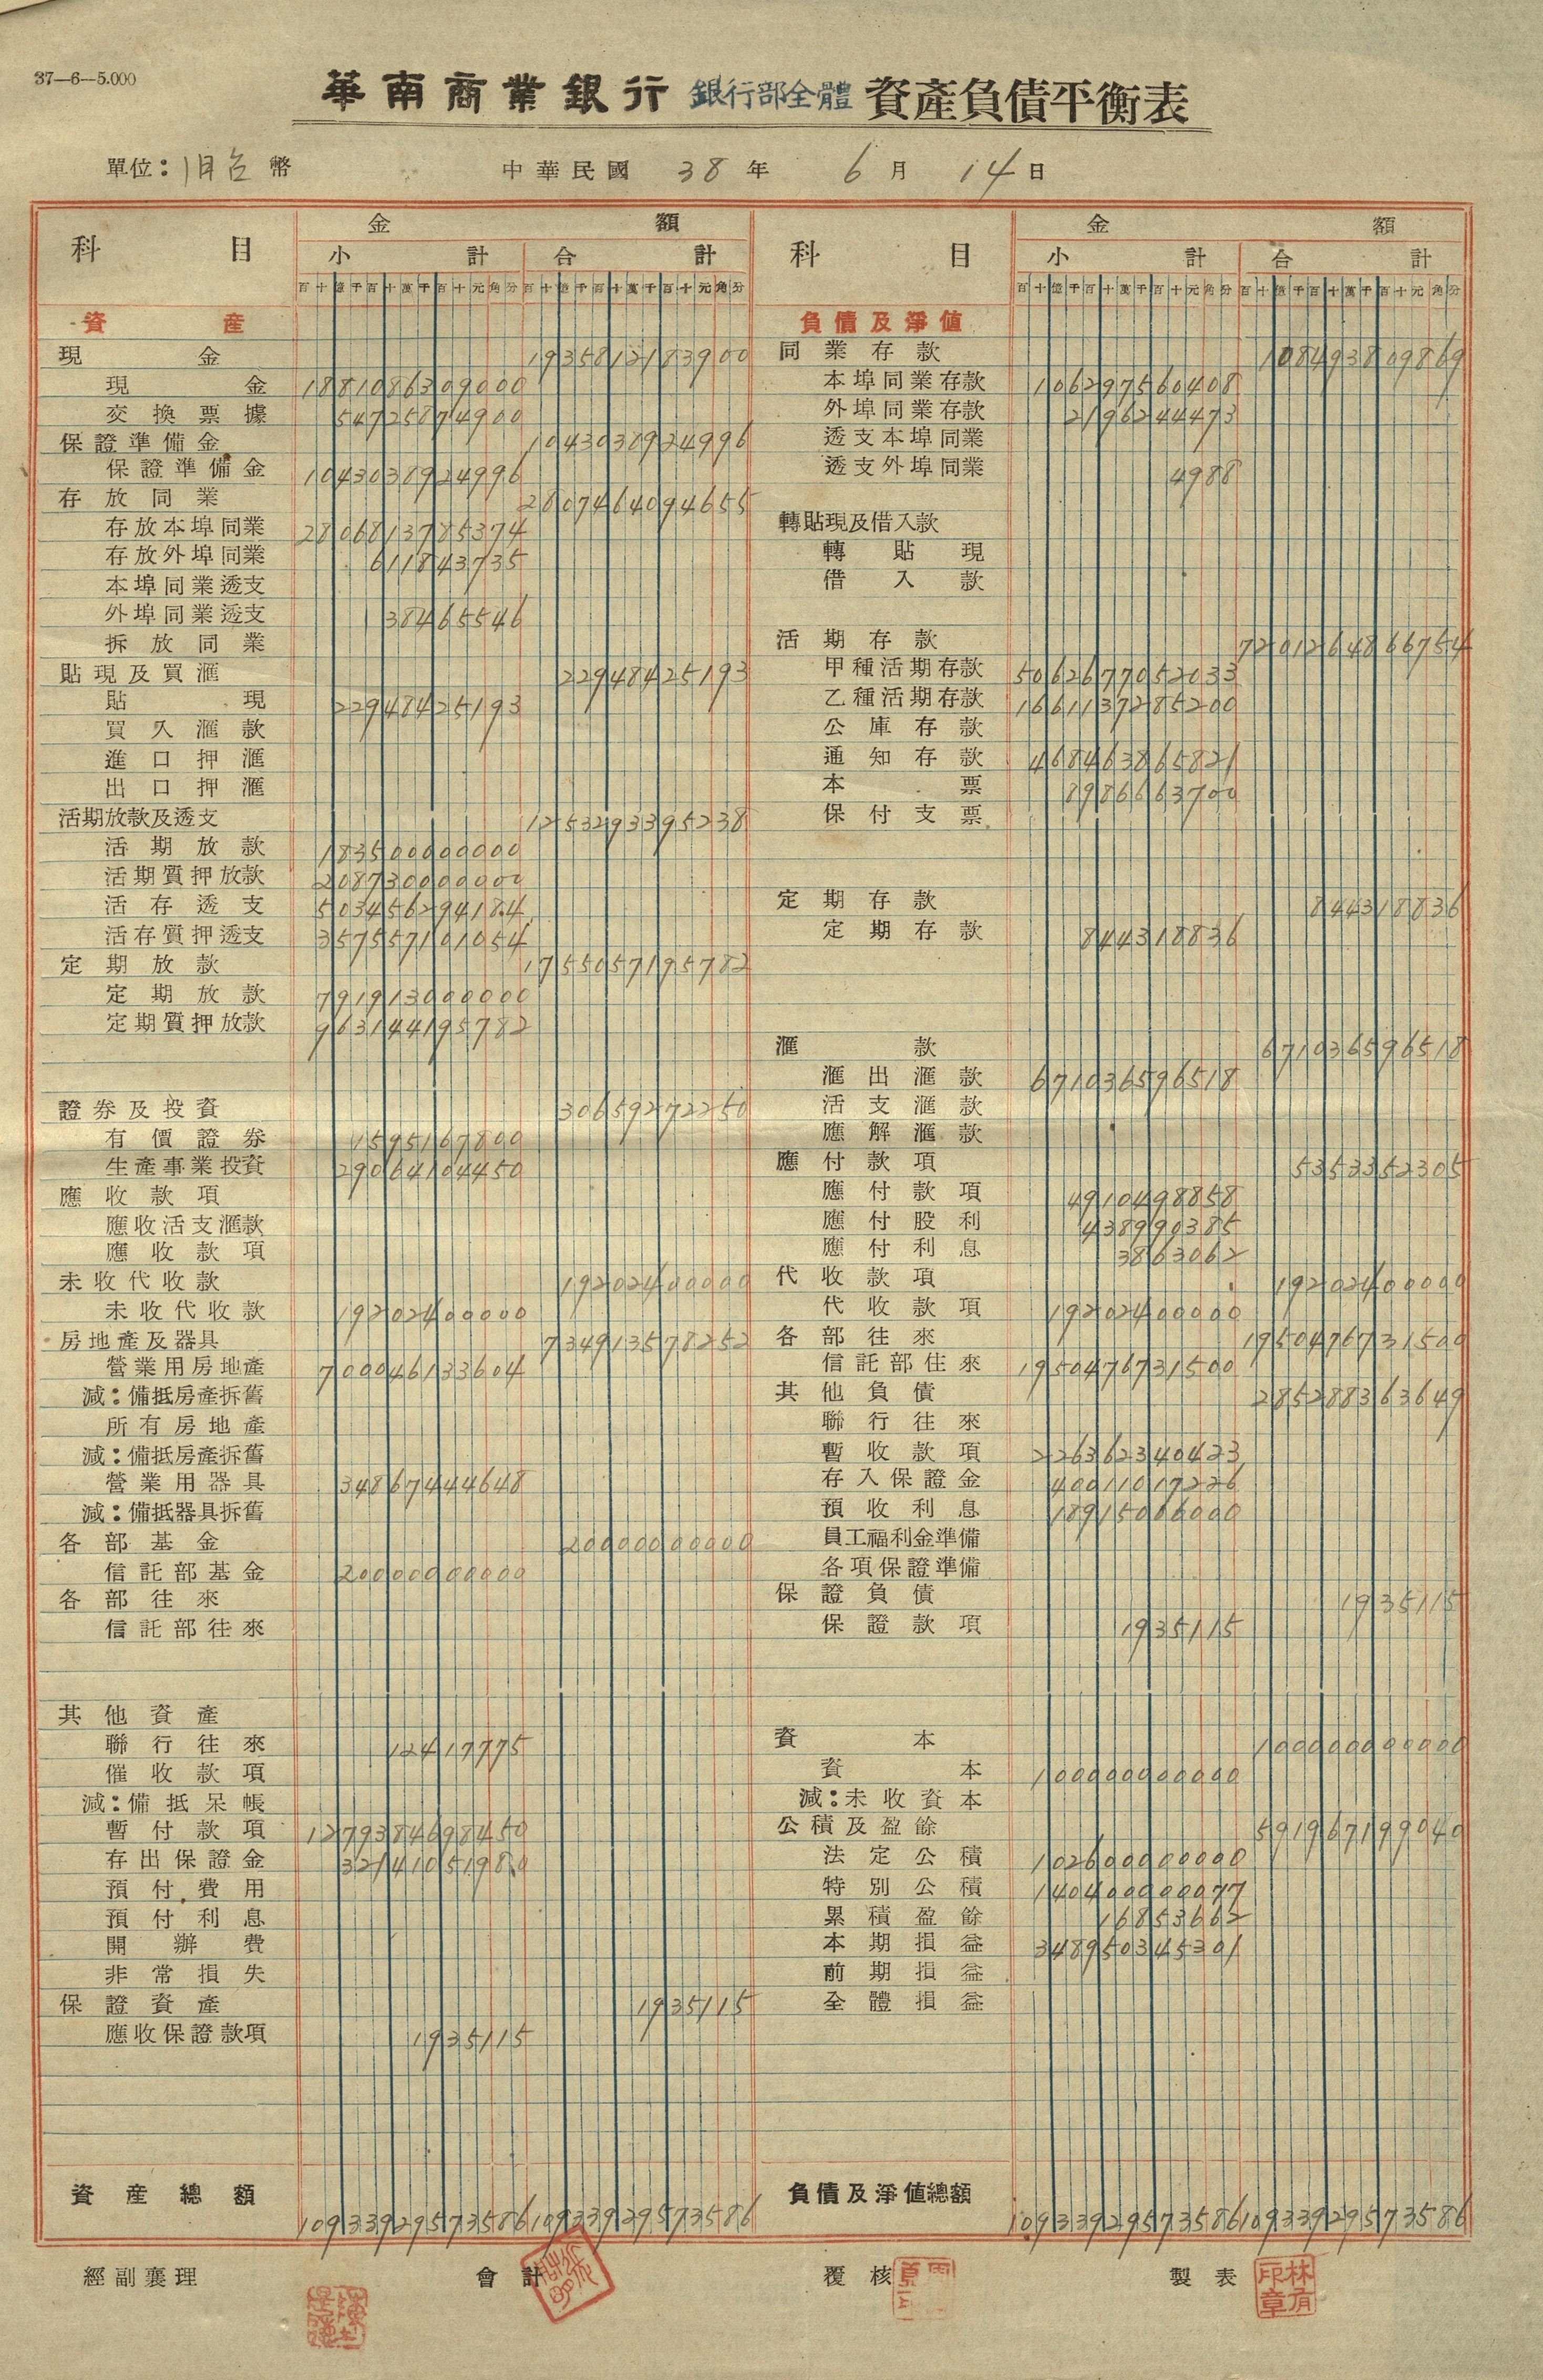 37—6—5.000
華南商業銀行 銀行部全體 資產負債平衡表
單位：旧台幣 中華民國 38 年 6 月 14 日
科目 金額 科目 金額
小計 合計 小計 合計
百十億千百十萬千百十元角分 百十億千百十萬千百十元角分 百十億千百十萬千百十元角分 百十億千百十萬千百十元角分
資產
現金 1935812183900
現金 1881086309000
交換票據 54725874900
保證準備金 1043038924996
保證準備金 1043038924996
存放同業 2807464094655
存放本埠同業 2806813785374
存放外埠同業 611843735
本埠同業透支
外埠同業透支 38465546
拆放同業
貼現及買滙 22948425193
貼現 22948425193
買入滙款
進口押滙
出口押滙
活期放款及透支 1253293395238
活期放款 183500000000
活期質押放款 208780000000
活存透支 503456294184
活存質押透支 357557101054
定期放款 1755057195782
定期放款 791913000000
定期質押放款 963144195782
證券及投資 30659272250
有價證券 1595167800
生產事業投資 29064104450
應收款項
應收活支滙款
應收款項
未收代收款 19202400000
未收代收款 19202400000
房地產及器具 734913578252
營業用房地產 700046133604
減：備抵房產拆舊
所有房地產
減：備抵房產拆舊
營業用器具 34867444648
減：備抵器具拆舊
各部基金 20000000000
信託部基金 20000000000
各部往來
信託部往來
其他資產
聯行往來 12417775
催收款項
減：備抵呆帳
暫付款項 1279384698450
存出保證金 32141051980
預付費用
預付利息
開辦費
非常損失
保證資產 1935115
應收保證款項 1935115
資產總額 10933929573586 10933929573586
負債及淨值
同業存款 108493809869
本埠同業存款 106297560408
外埠同業存款 2196244473
透支本埠同業
透支外埠同業 4988
轉貼現及借入款
轉貼現
借入款
活期存款 7201264866754
甲種活期存款 5062677052033
乙種活期存款 1661137285200
公庫存款
通知存款 468463865821
本票 8986663700
保付支票
定期存款 844318836
定期存款 844318836
滙款 671036596518
滙出滙款 671036596518
活支滙款
應解滙款
應付款項 5353352305
應付款項 4910498858
應付股利 438990385
應付利息 3863062
代收款項 19202400000
代收款項 19202400000
各部往來 1950476731500
信託部往來 1950476731500
其他負債 285288363649
聯行往來
暫收款項 226362340423
存入保證金 40011017226
預收利息 18915006000
員工福利金準備
各項保證準備
保證負債 1935115
保證款項 1935115
資本 100000000000
資本 100000000000
減：未收資本
公積及盈餘 591967199040
法定公積 102600000000
特別公積 140400000077
累積盈餘 16853662
本期損益 348950345301
前期損益
全體損益
負債及淨值總額 10933929573586 10933929573586
經副襄理 會計 覆核 製表
林有印章